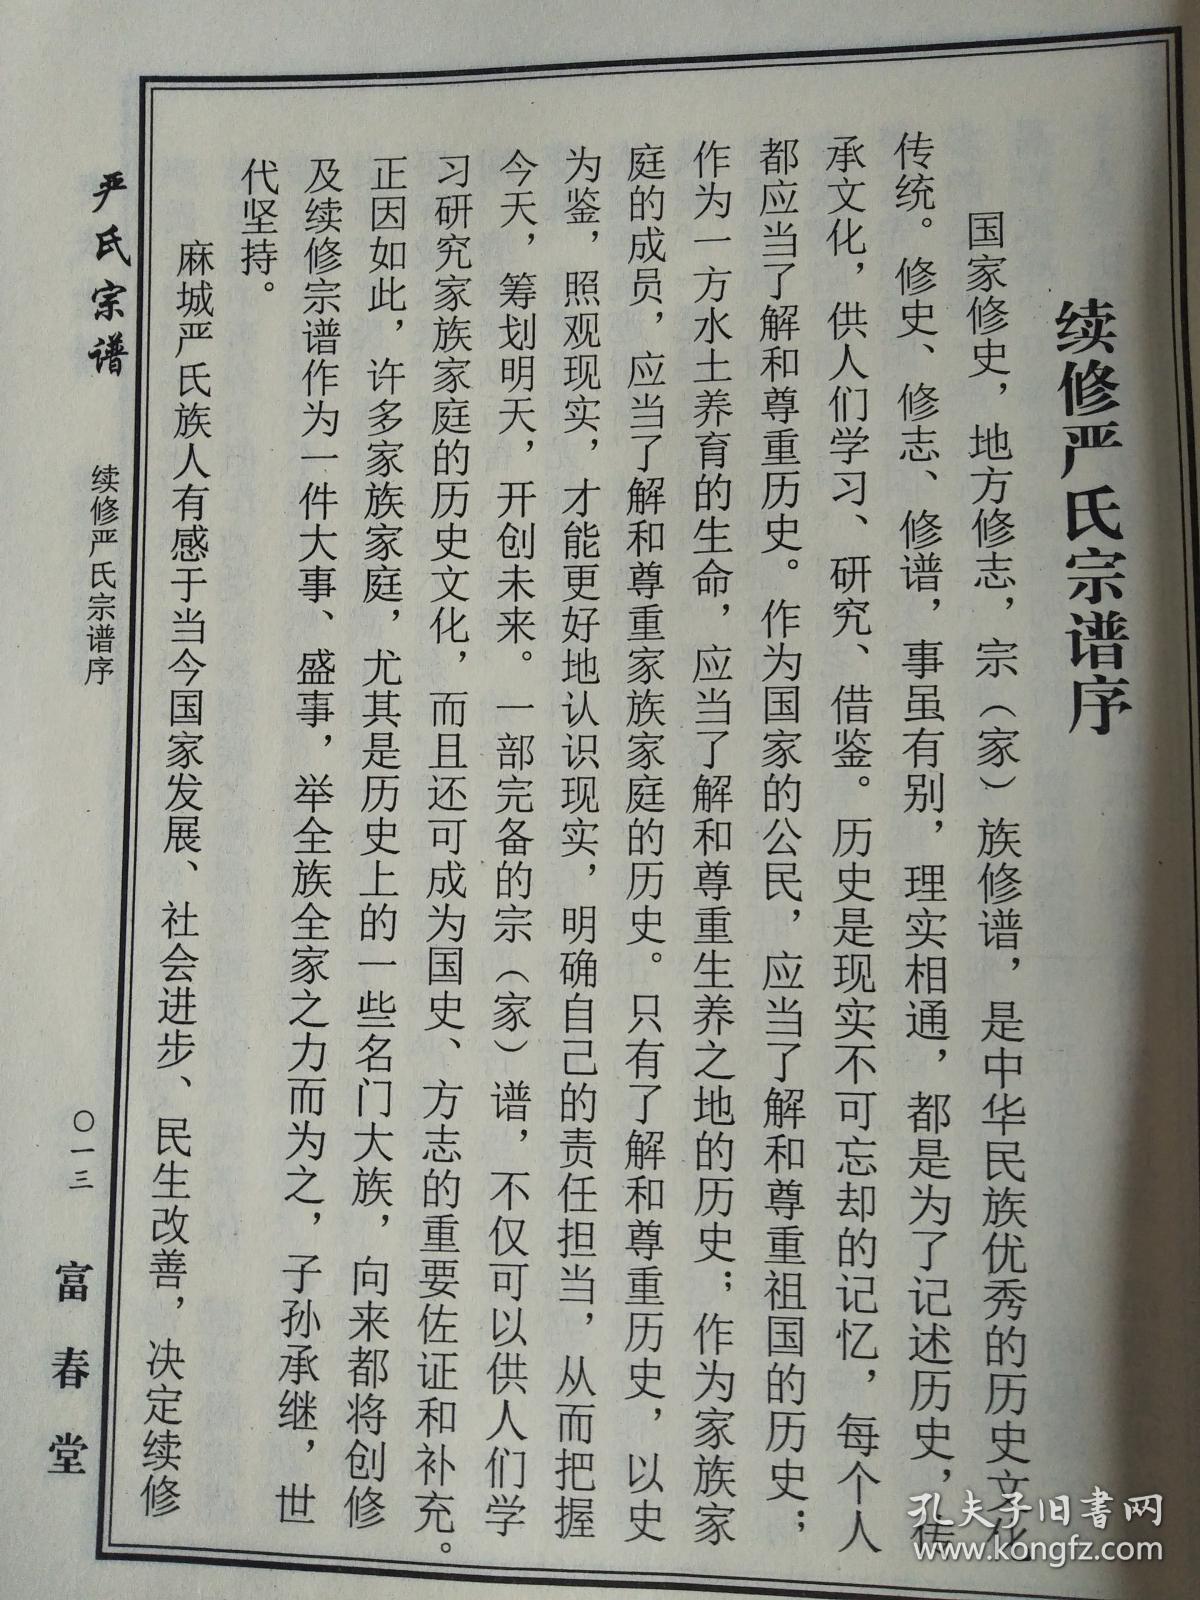 续修严氏宗谱序
国家修史，地方修志，宗（家）族修谱，是中华民族优秀的历史文化
传统。修史、修志、修谱，事虽有别，理实相通，都是为了记述历史，传
承文化，供人们学习、研究、借鉴。历史是现实不可忘却的记忆，每个人
都应当了解和尊重历史。作为国家的公民，应当了解和尊重祖国的历史；
作为一方水土养育的生命，应当了解和尊重生养之地的历史；作为家族家
庭的成员，应当了解和尊重家族家庭的历史。只有了解和尊重历史，以史
为鉴，照观现实，才能更好地认识现实，明确自己的责任担当，从而把握
今天，筹划明天，开创未来。一部完备的宗（家）谱，不仅可以供人们学
习研究家族家庭的历史文化，而且还可成为国史、方志的重要佐证和补充。
正因如此，许多家族家庭，尤其是历史上的一些名门大族，向来都将创修
及续修宗谱作为一件大事、盛事，举全族全家之力而为之，子孙承继，世
代坚持。
麻城严氏族人有感于当今国家发展、社会进步、民生改善，决定续修
严氏宗谱
续修严氏宗谱序
〇一三
富春堂
孔夫子旧书网
www.kongfz.com